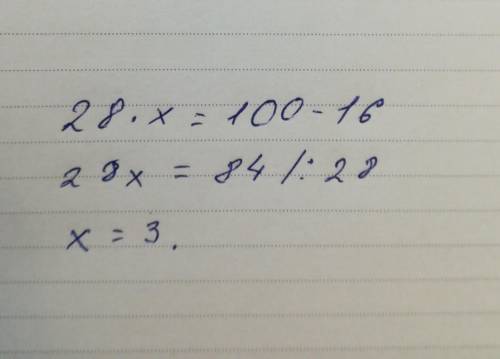 28 · x = 100 - 16
28x = 84 /: 28
x = 3.